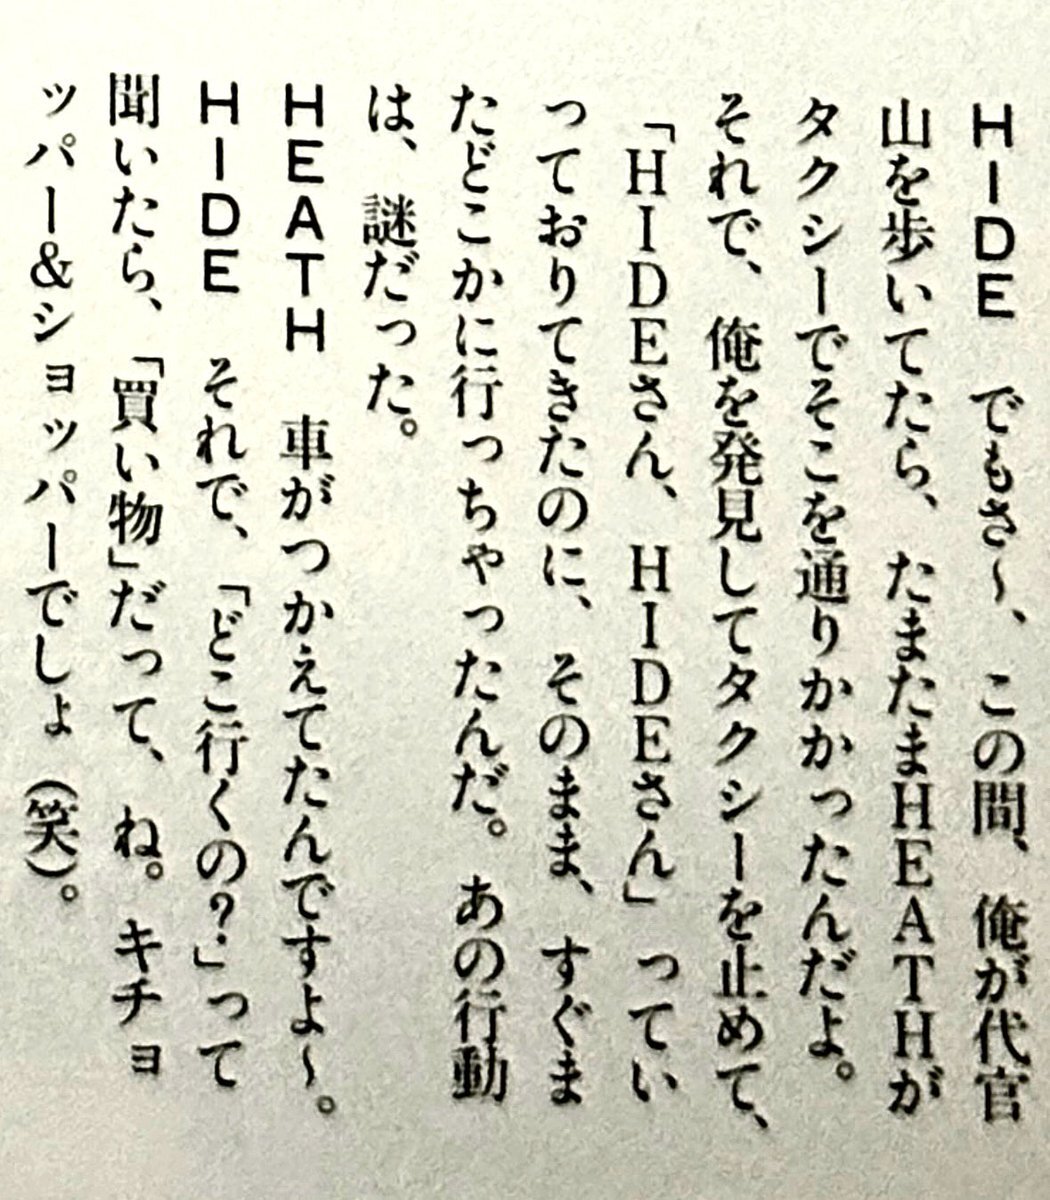 HIDE　でもさ〜、この間、俺が代官
山を歩いてたら、たまたまHEATHが
タクシーでそこを通りかかったんだよ。
それで、俺を発見してタクシーを止めて、
「HIDEさん、HIDEさん」ってい
っておりてきたのに、そのまま、すぐま
たどこかに行っちゃったんだ。あの行動
は、謎だった。
HEATH　車がつかえてたんですよ〜。
HIDE　それで、「どこ行くの？」って
聞いたら、「買い物」だって、ね。キチョ
ッパー＆ショッパーでしょ（笑）。